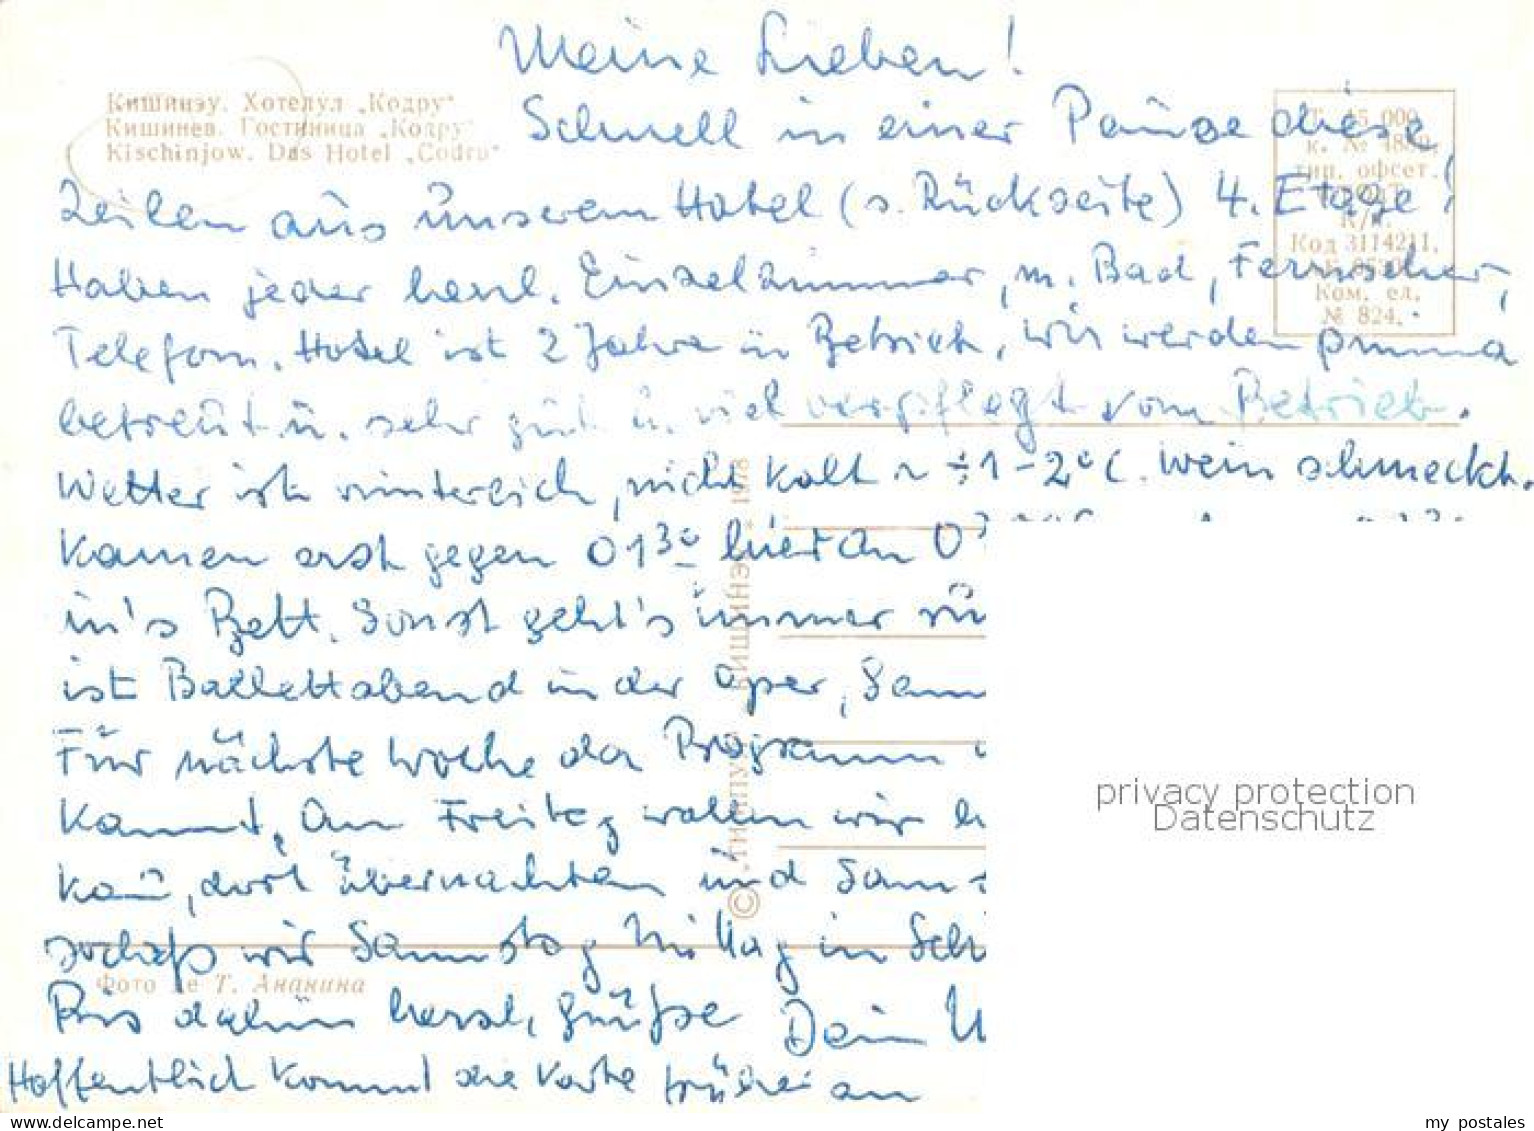 Meine Lieben!
Кишинэу. Хотелул „Кодру“
Кишинев. Гостиница „Кодру“
Kischinjow. Das Hotel „Codru“
Schnell in einer Pause diese
Zeilen aus unserem Hotel (s. Rückseite) 4. Etage!
Haben jeder herrl. Einzelzimmer, m. Bad, Fernseher,
Telefon. Hotel ist 2 Jahre in Betrieb, wir werden prima
betreut u. sehr gut u. viel verpflegt vom Betrieb.
Wetter ist winterlich, nicht kalt ~ ÷1-2°C. Wein schmeckt.
Kamen erst gegen 01³⁰ hier an 0
in's Bett. Sonst geht's immer
ist Ballettabend in der Oper, Sam
Für nächste Woche der Programm
kannt. Am Freitag wollen wir
dort übernachten und Sam
sodaß wir Samstag Mittag in Sch
Bis dahin herzl. Grüße Dein U
Hoffentlich kommt die Karte früher an
45 000
тип. офсет.
Код 3114211.
Ком. ед.
№ 824.
КИШИНЭУ 1978
© „ТИМПУЛ“
Фото де Т. Ананина
privacy protection
Datenschutz
my_postales